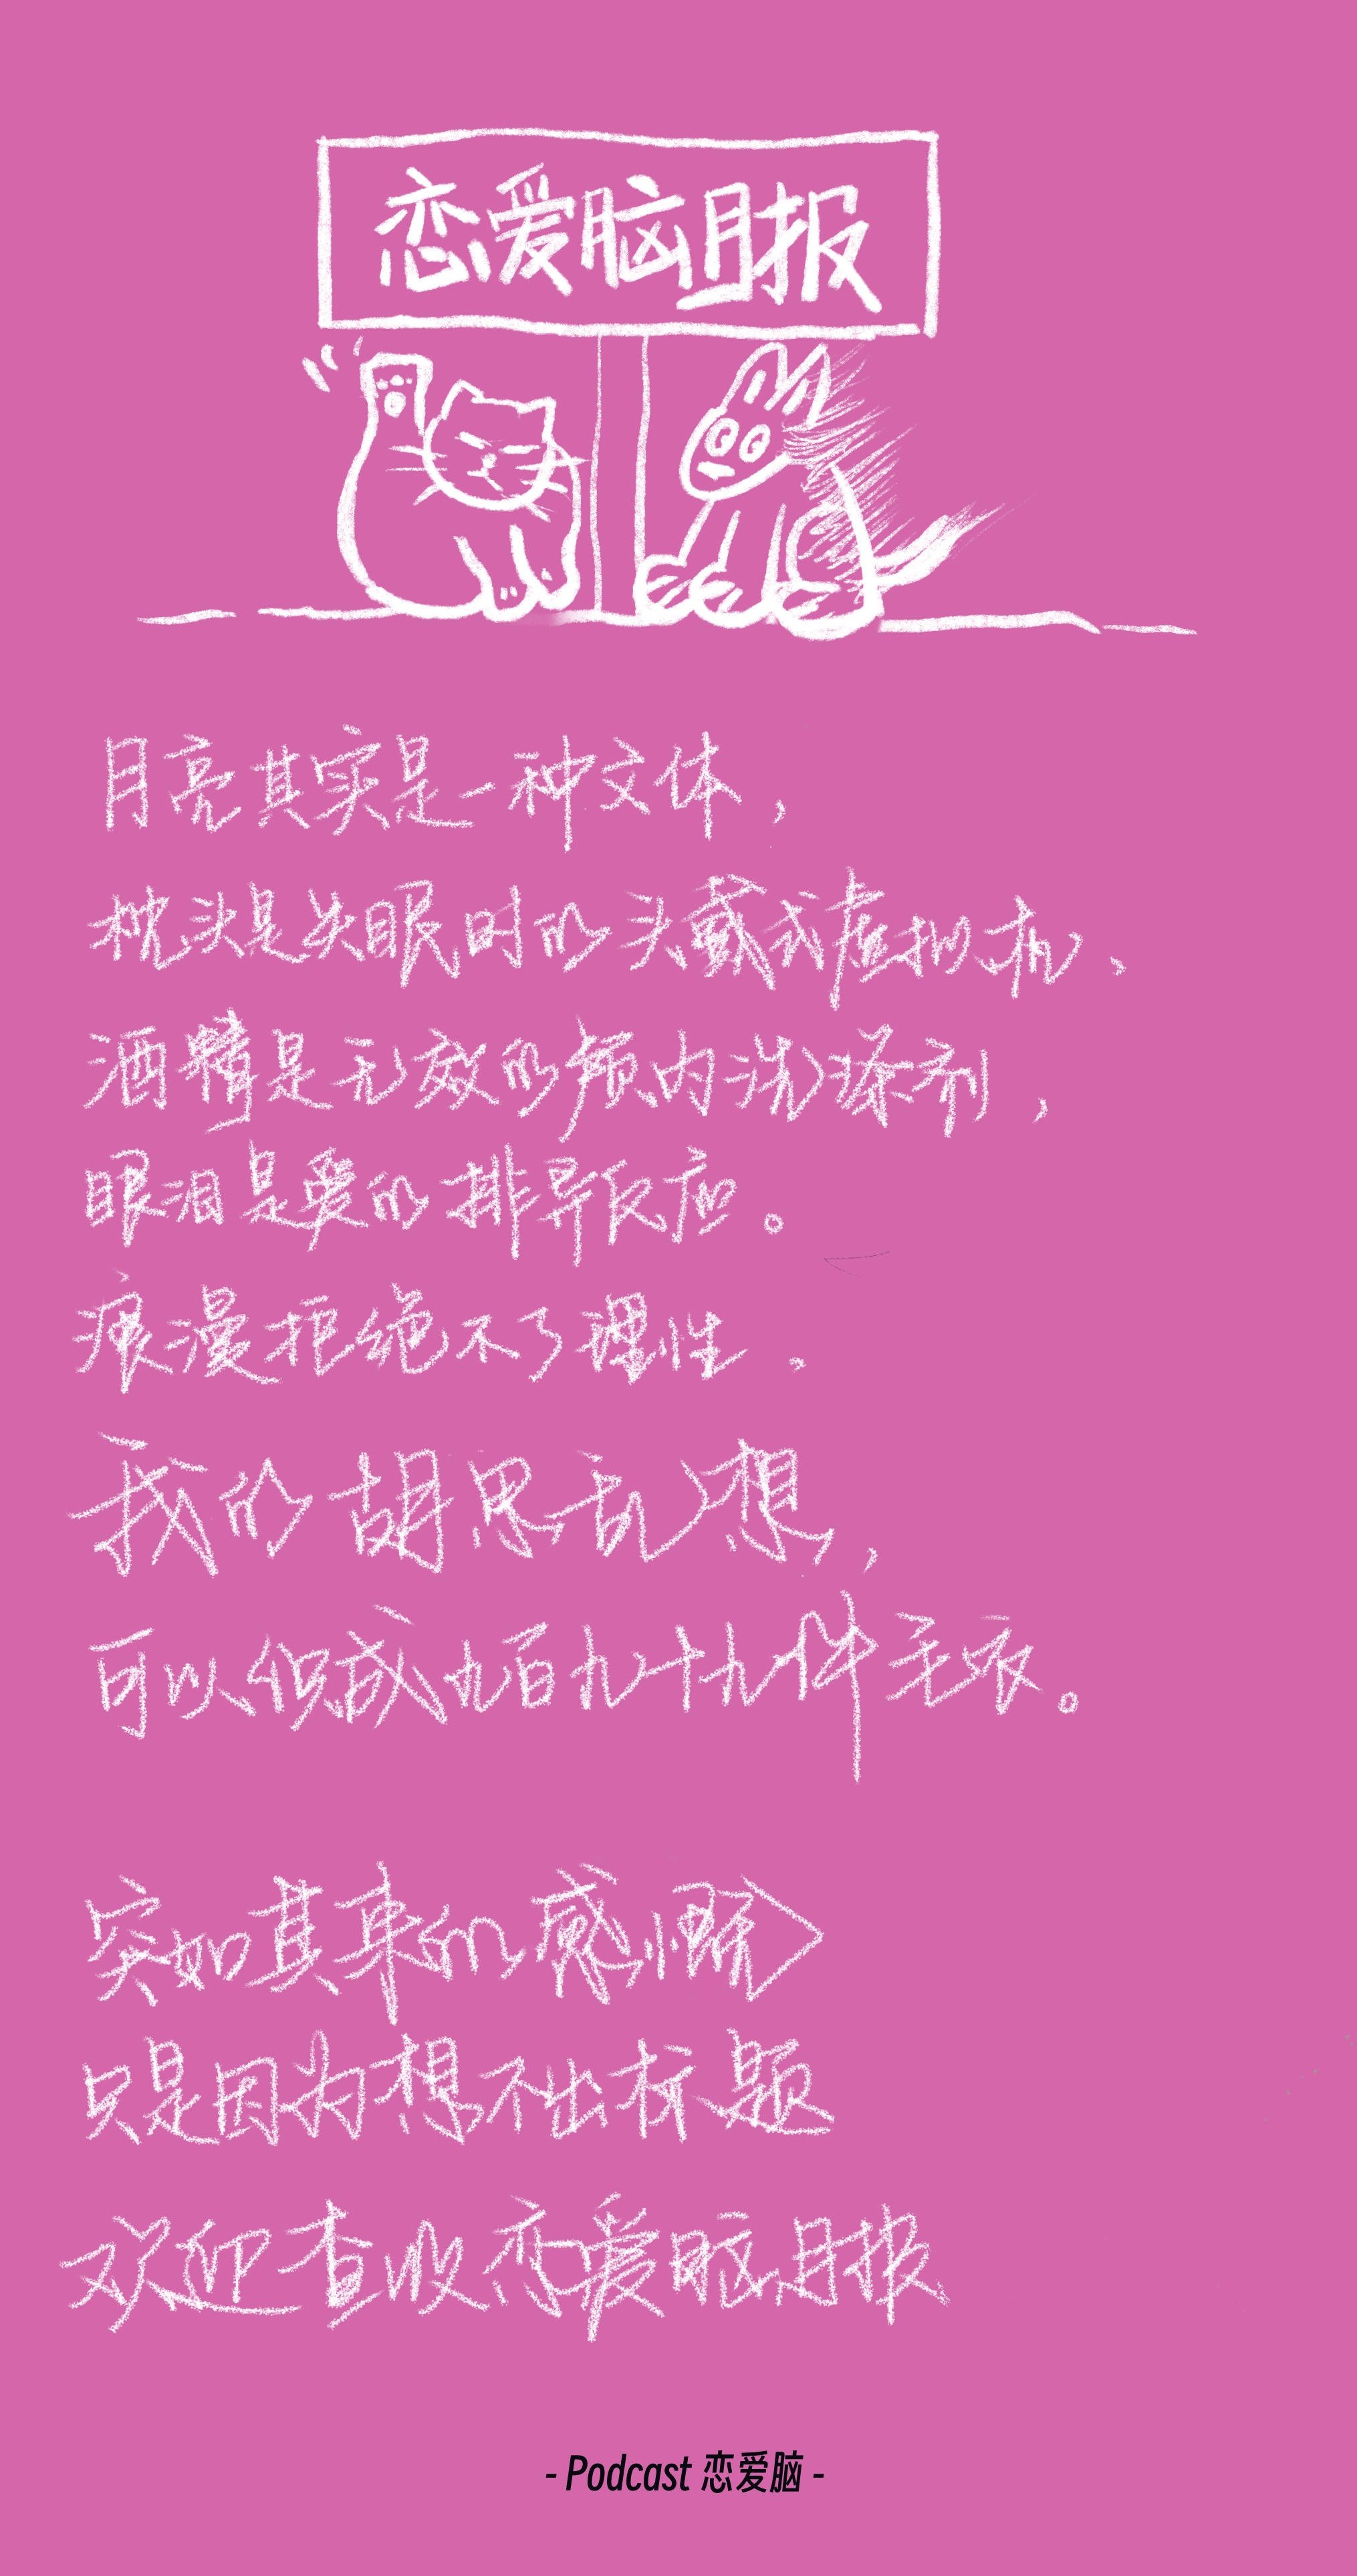 恋爱脑月报
月亮其实是一种文体，
枕头是失眠时的头戴式虚拟机、
酒精是无效的颅内洗涤剂，
眼泪是爱的排异反应。
浪漫拒绝不了理性、
我的胡思乱想，
可以织成九百九十九件毛衣。
突如其来的感慨
只是因为想不出标题
欢迎查收恋爱脑月报
- Podcast 恋爱脑 -